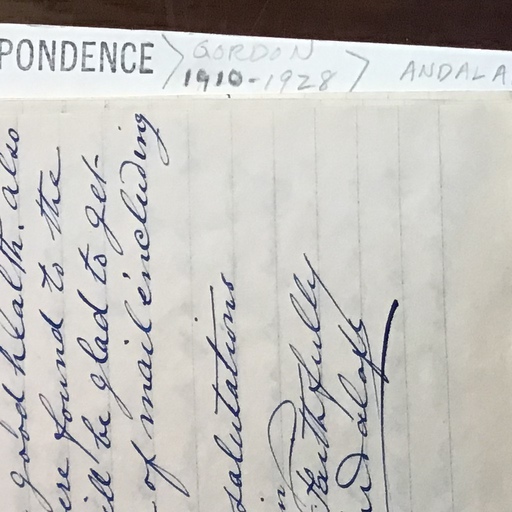 good health. also
ere found to the
ill be glad to get
of mail including
salutations
in
Faithfully
PONDENCE
GORDON
1910-1928
ANDALA